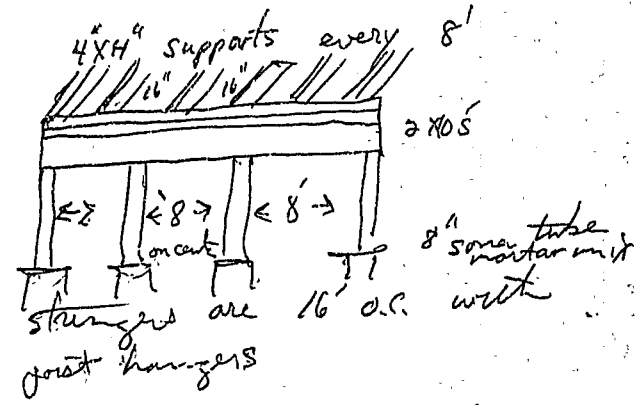 4"XH" supports every 8'
16" 16"
2X10's
8' 8'
on cent
8" sona tube
mortar mix
stringers are 16' o.c. with
joist hangers